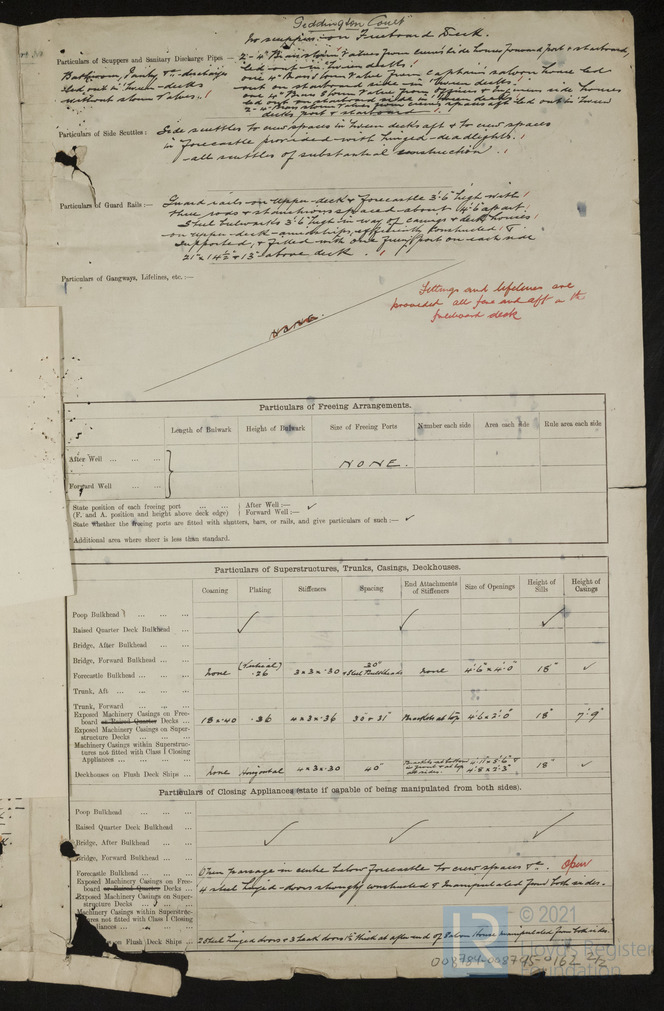 Teddington Court
No scuppers on Freeboard Deck.
Particulars of Scuppers and Sanitary Discharge Pipes —
led out in tween decks!
Bathroom, Pantry, &c. discharges
led out in tween-decks
without storm valves.!
out on starboard side in tween decks!
decks port & starboard
Particulars of Side Scuttles :
Side scuttles to crew spaces in tween decks aft & to crew spaces
in forecastle provided with hinged-deadlights.!
-all scuttles of substantial construction.!
Particulars of Guard Rails :—
Guard rails on upper-deck & forecastle 3'.6" high with!
three rods & stanchions spaced about 4'.6" apart;
Steel bulwarks 3'.6" high in way of casings & deck houses!
on upper-deck-amidships, efficiently constructed &
supported, & fitted with one freeing port on each side
above deck.
Particulars of Gangways, Lifelines, etc. :—
None.
Fittings and lifelines are
provided all fore and aft on the
freeboard deck
Particulars of Freeing Arrangements.
Length of Bulwark Height of Bulwark Size of Freeing Ports Number each side Area each side Rule area each side
After Well ... ... ...
NONE.
Forward Well ... ...
State position of each freeing port ... ... After Well :— ✓
(F. and A. position and height above deck edge) Forward Well :—
State whether the freeing ports are fitted with shutters, bars, or rails, and give particulars of such :— ✓
Additional area where sheer is less than standard.
Particulars of Superstructures, Trunks, Casings, Deckhouses.
Coaming Plating Stiffeners Spacing End Attachments of Stiffeners Size of Openings Height of Sills Height of Casings
Poop Bulkhead ... ... ...
Raised Quarter Deck Bulkhead ... ✓ ✓ ✓
Bridge, After Bulkhead ... ...
Bridge, Forward Bulkhead ... ...
Forecastle Bulkhead ... ... None (Vertical) .26 3 x 3 x .30 30" None 4'.6" x 4'.0" 18" ✓
Trunk, Aft ... ... ... ...
Trunk, Forward ... ... ...
Exposed Machinery Casings on Free-
board or Raised Quarter Decks ... 18 x .40 .36 4 x 3 x .36 30 & 31" Brackets at top 4'.6 x 2'.0" 18" 7'.9"
Exposed Machinery Casings on Super-
structure Decks ... ... ...
Machinery Casings within Superstruc-
tures not fitted with Class I Closing
Appliances ... ... ... ...
Deckhouses on Flush Deck Ships ... None Horizontal 4 x 3 x .30 40" 18" ✓
Particulars of Closing Appliances (state if capable of being manipulated from both sides).
Poop Bulkhead ... ... ...
Raised Quarter Deck Bulkhead ...
Bridge, After Bulkhead ... ... ✓ ✓ ✓
Bridge, Forward Bulkhead ... ...
Forecastle Bulkhead ... ... Open passage in centre below forecastle to crew spaces &c. Open
Exposed Machinery Casings on Free-
board or Raised Quarter Decks ... 4 steel hinged-doors strongly constructed & manipulated from both sides.
Exposed Machinery Casings on Super-
structure Decks ... ...
Machinery Casings within Superstruc-
tures not fitted with Class I Closing
Appliances ... ... ...
on Flush Deck Ships ... 2 Steel hinged doors & 3 teak doors thick at after end of Saloon House manipulated from both sides.
LR © 2021
Lloyd's Register
Foundation
008784-008795-0162 2/2